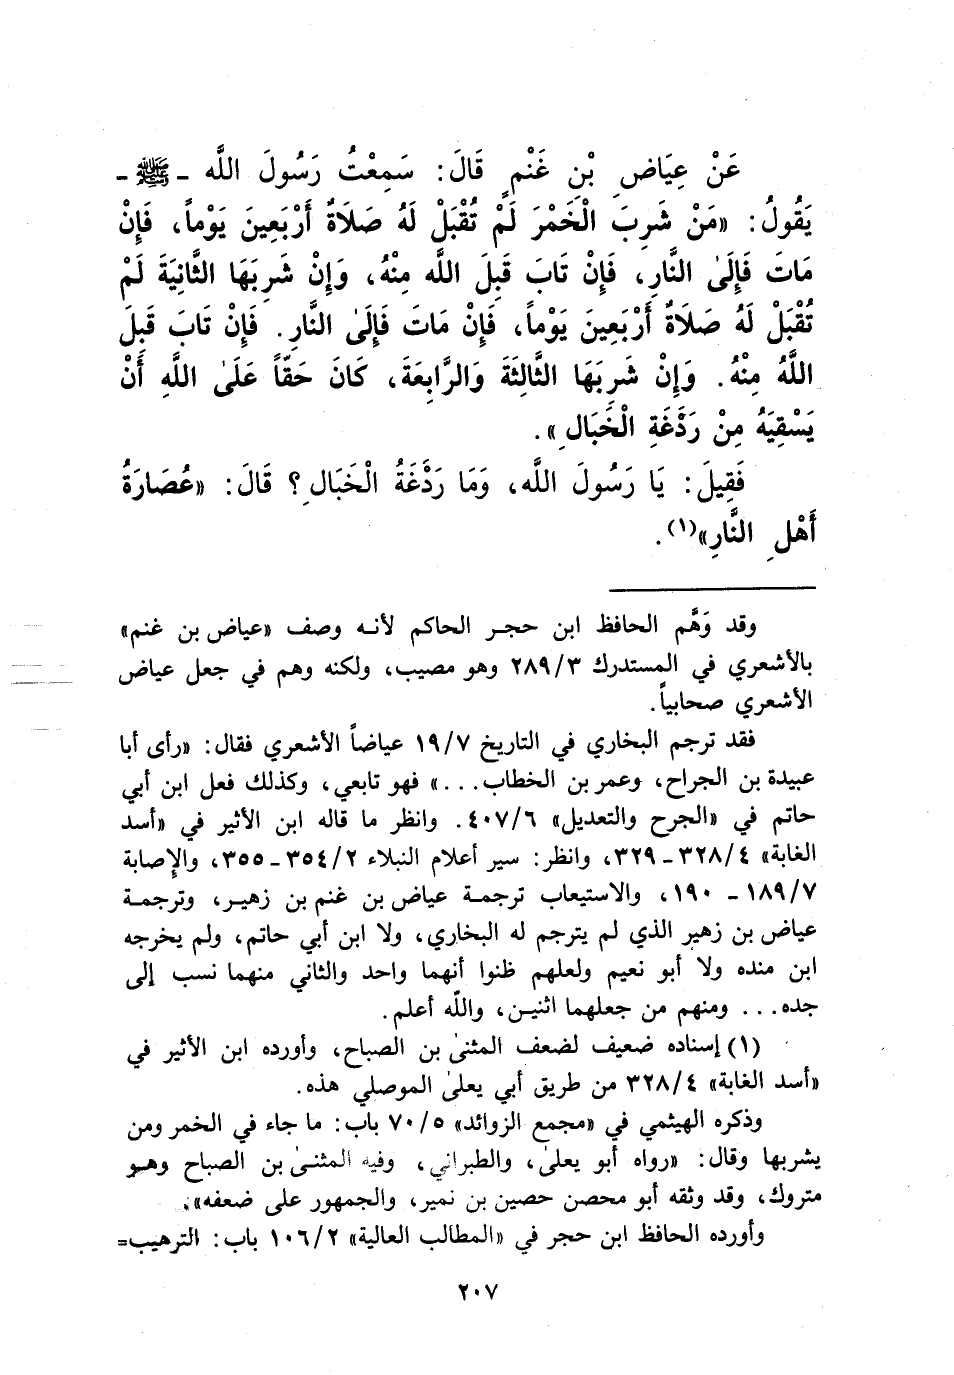 عَنْ عِيَاضِ بْنِ غَنْمٍ قَالَ: سَمِعْتُ رَسُولَ اللَّه ـ ﷺ ـ
يَقُولُ: «مَنْ شَرِبَ الْخَمْرَ لَمْ تُقْبَلْ لَهُ صَلَاةٌ أَرْبَعِينَ يَوْماً، فَإِنْ
مَاتَ فَإِلَىٰ النَّارِ، فَإِنْ تَابَ قَبِلَ اللَّه مِنْهُ، وَإِنْ شَرِبَهَا الثَّانِيَةَ لَمْ
تُقْبَلْ لَهُ صَلَاةٌ أَرْبَعِينَ يَوْماً، فَإِنْ مَاتَ فَإِلَىٰ النَّارِ. فَإِنْ تَابَ قَبِلَ
اللَّهُ مِنْهُ. وَإِنْ شَرِبَهَا الثَّالِثَةَ وَالرَّابِعَةَ، كَانَ حَقّاً عَلَىٰ اللَّهِ أَنْ
يَسْقِيَهُ مِنْ رَدْغَةِ الْخَبَالِ».
فَقِيلَ: يَا رَسُولَ اللَّه، وَمَا رَدْغَةُ الْخَبَالِ؟ قَالَ: «عُصَارَةُ
أَهْلِ النَّارِ»(١).
وقد وَهَّم الحافظ ابن حجر الحاكم لأنه وصف «عياض بن غنم»
بالأشعري في المستدرك ٢٨٩/٣ وهو مصيب، ولكنه وهم في جعل عياض
الأشعري صحابياً.
فقد ترجم البخاري في التاريخ ١٩/٧ عياضاً الأشعري فقال: «رأى أبا
عبيدة بن الجراح، وعمر بن الخطاب...» فهو تابعي، وكذلك فعل ابن أبي
حاتم في «الجرح والتعديل» ٤٠٧/٦. وانظر ما قاله ابن الأثير في «أسد
الغابة» ٣٢٨/٤ ـ ٣٢٩، وانظر: سير أعلام النبلاء ٣٥٤/٢ ـ ٣٥٥، والإصابة
١٨٩/٧ ـ ١٩٠، والاستيعاب ترجمة عياض بن غنم بن زهير، وترجمة
عياض بن زهير الذي لم يترجم له البخاري، ولا ابن أبي حاتم، ولم يخرجه
ابن منده ولا أبو نعيم ولعلهم ظنوا أنهما واحد والثاني منهما نسب إلى
جده... ومنهم من جعلهما اثنين، واللَّه أعلم.
(١) إسناده ضعيف لضعف المثنىٰ بن الصباح، وأورده ابن الأثير في
«أسد الغابة» ٣٢٨/٤ من طريق أبي يعلىٰ الموصلي هذه.
وذكره الهيثمي في «مجمع الزوائد» ٧٠/٥ باب: ما جاء في الخمر ومن
يشربها وقال: «رواه أبو يعلىٰ، والطبراني، وفيه المثنىٰ بن الصباح وهو
متروك، وقد وثقه أبو محصن حصين بن نمير، والجمهور على ضعفه».
وأورده الحافظ ابن حجر في «المطالب العالية» ١٠٦/٢ باب: الترهيب=
٢٠٧